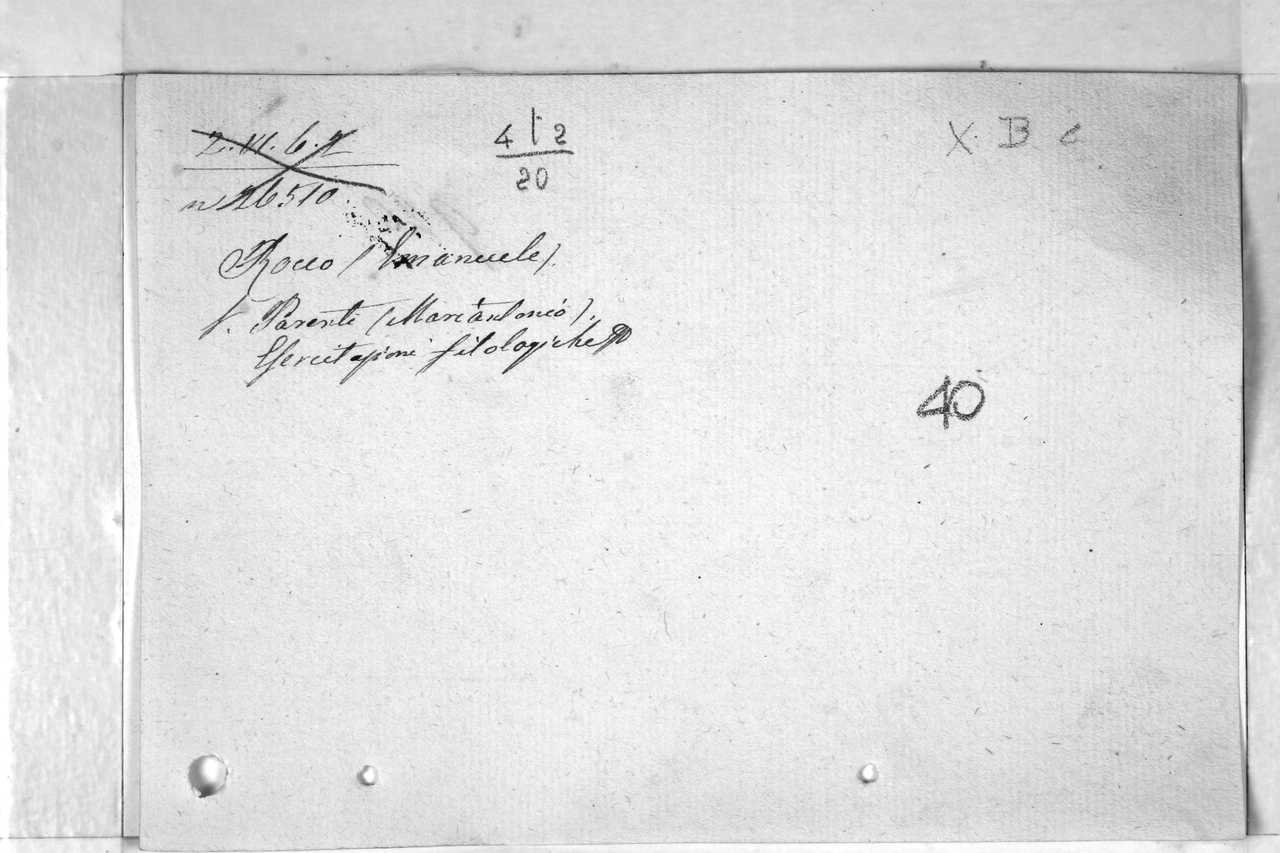 2. VI. 6. 2
4 | 2
20
X. B c
n 26510
Rocco (Emanuele).
V. Parenti (Marcantonio).
Esercitazioni filologiche
40